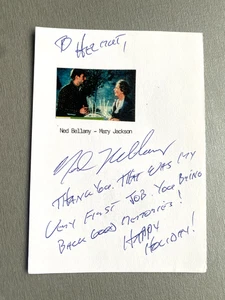 TO HELMUT,
Ned Bellamy - Mary Jackson
Ned Bellamy
THANK YOU. THAT WAS MY
VERY FIRST JOB. YOU BRING
BACK GOOD MEMORIES!
HAPPY
HOLIDAY!